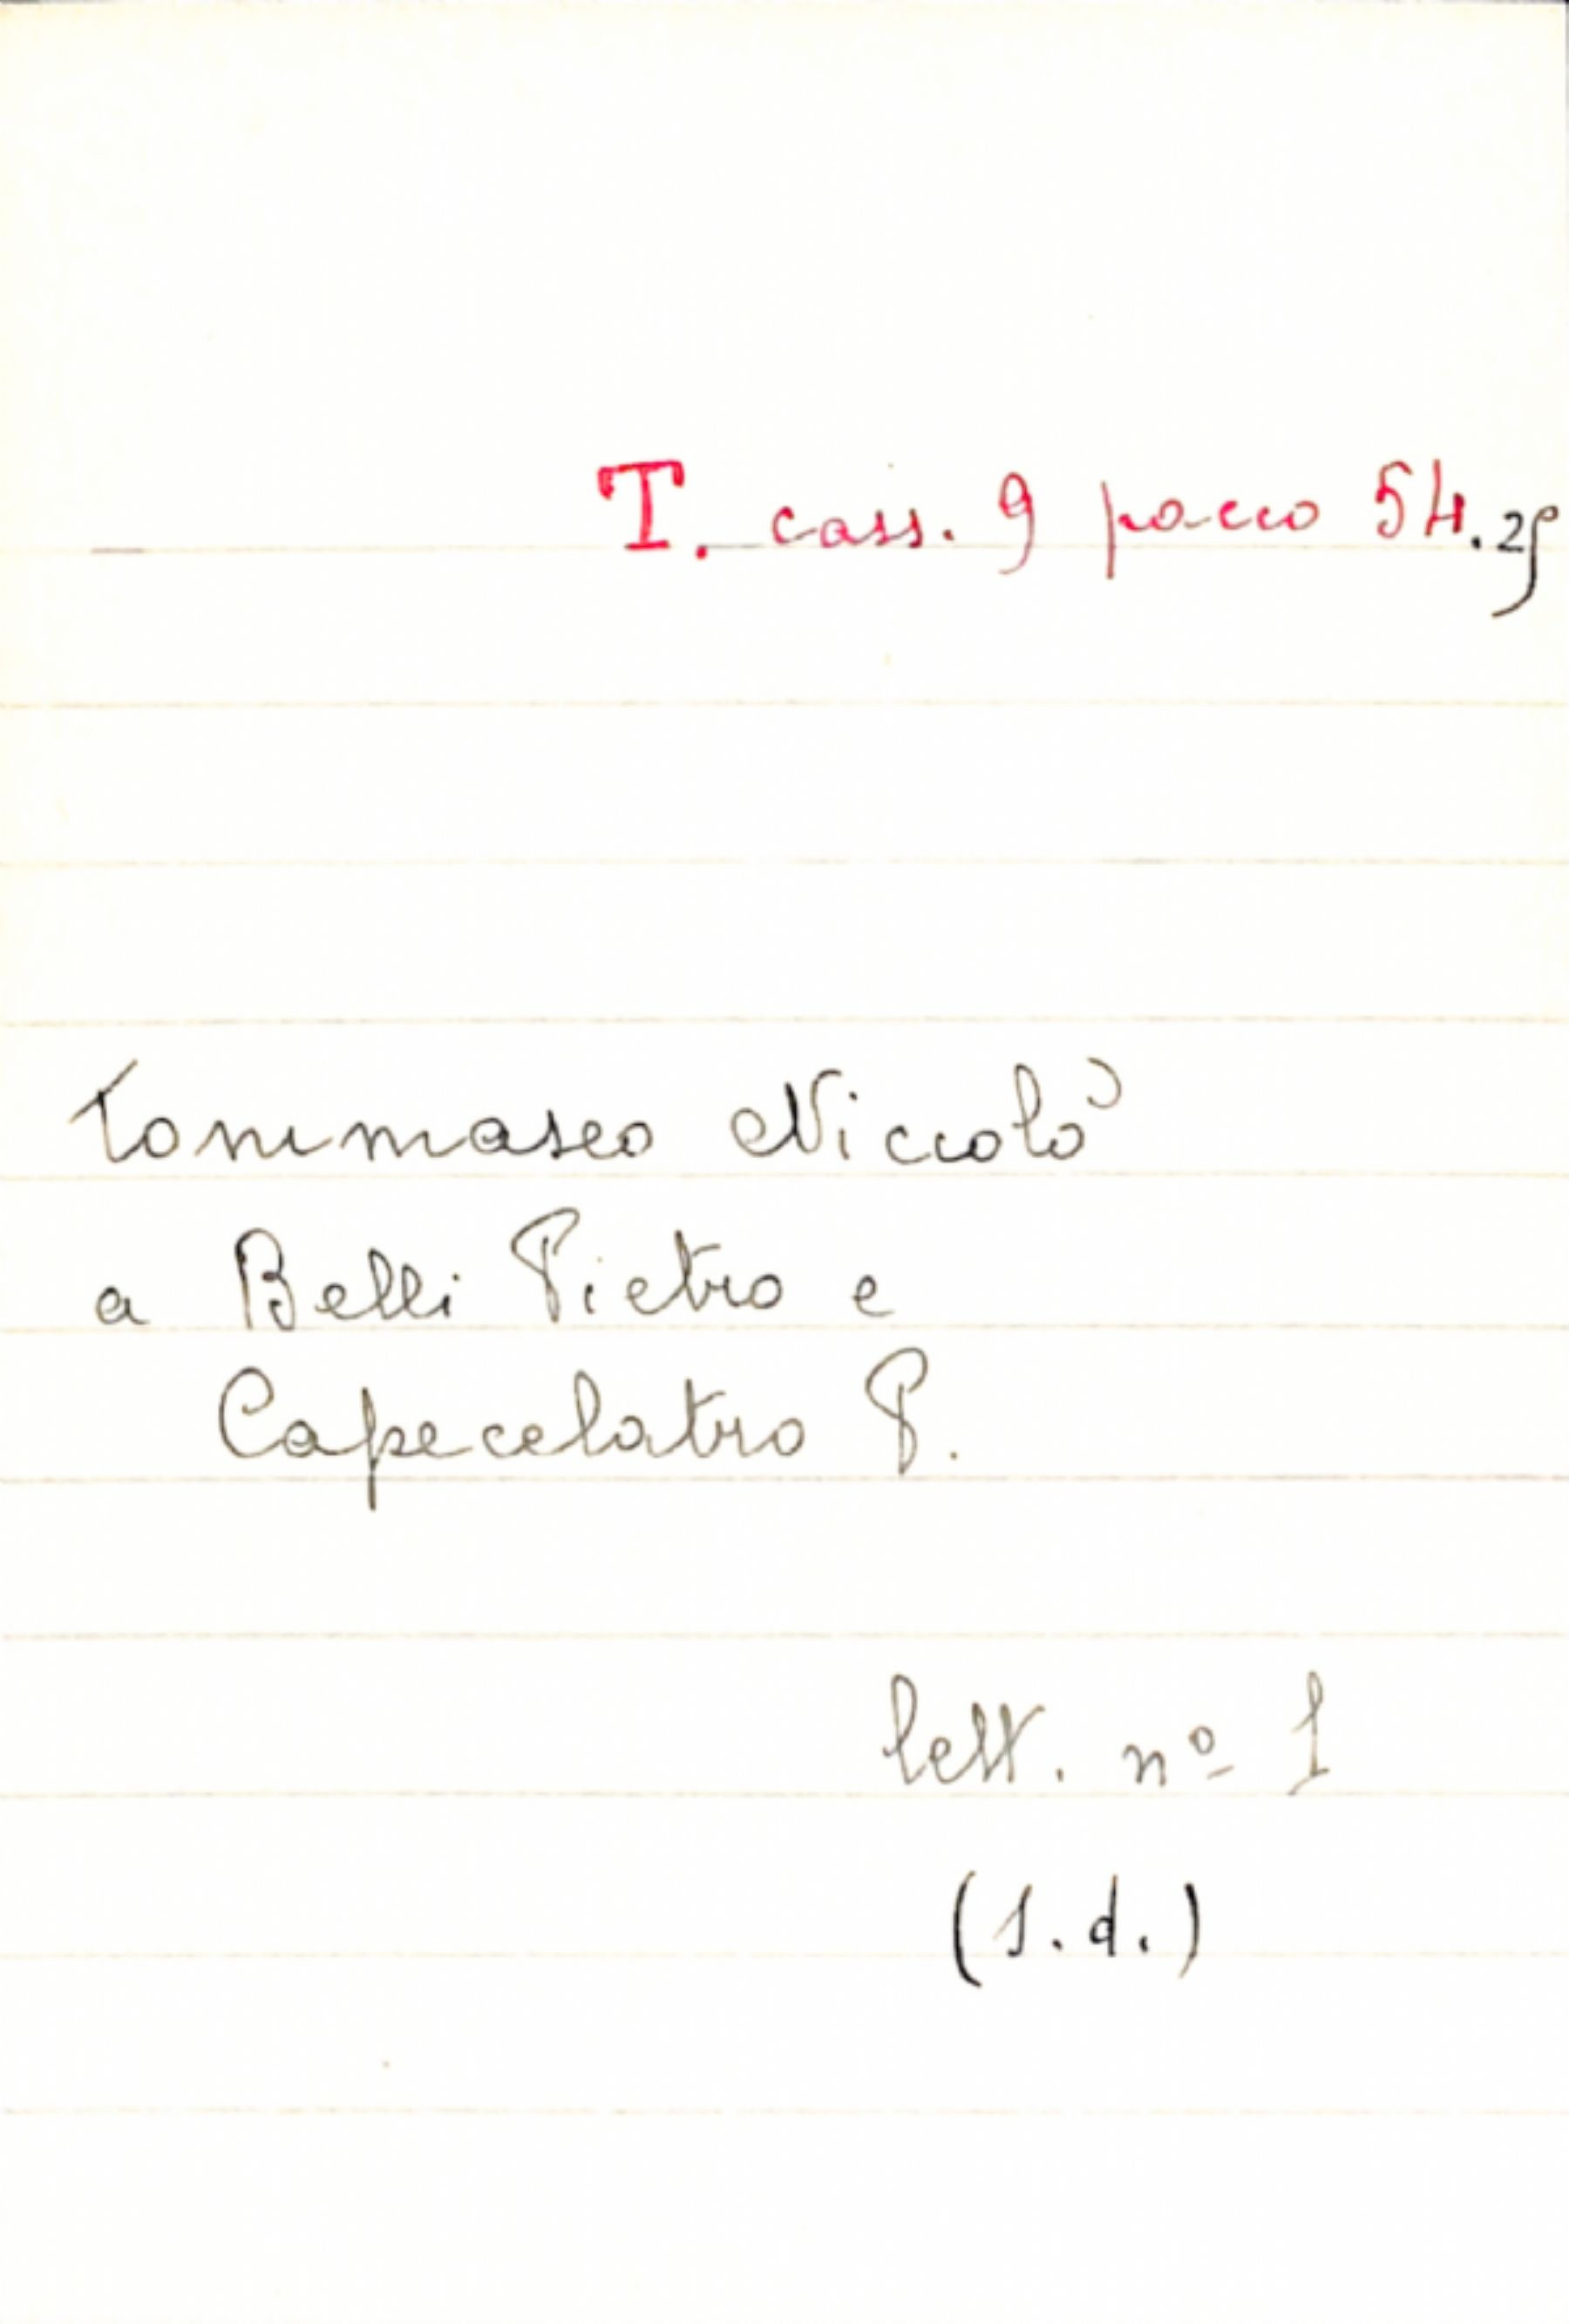 T. cass. 9 pacco 54.29
Tommaseo Niccolò
a Belli Pietro e
Capecelatro P.
lett. nº 1
(s.d.)